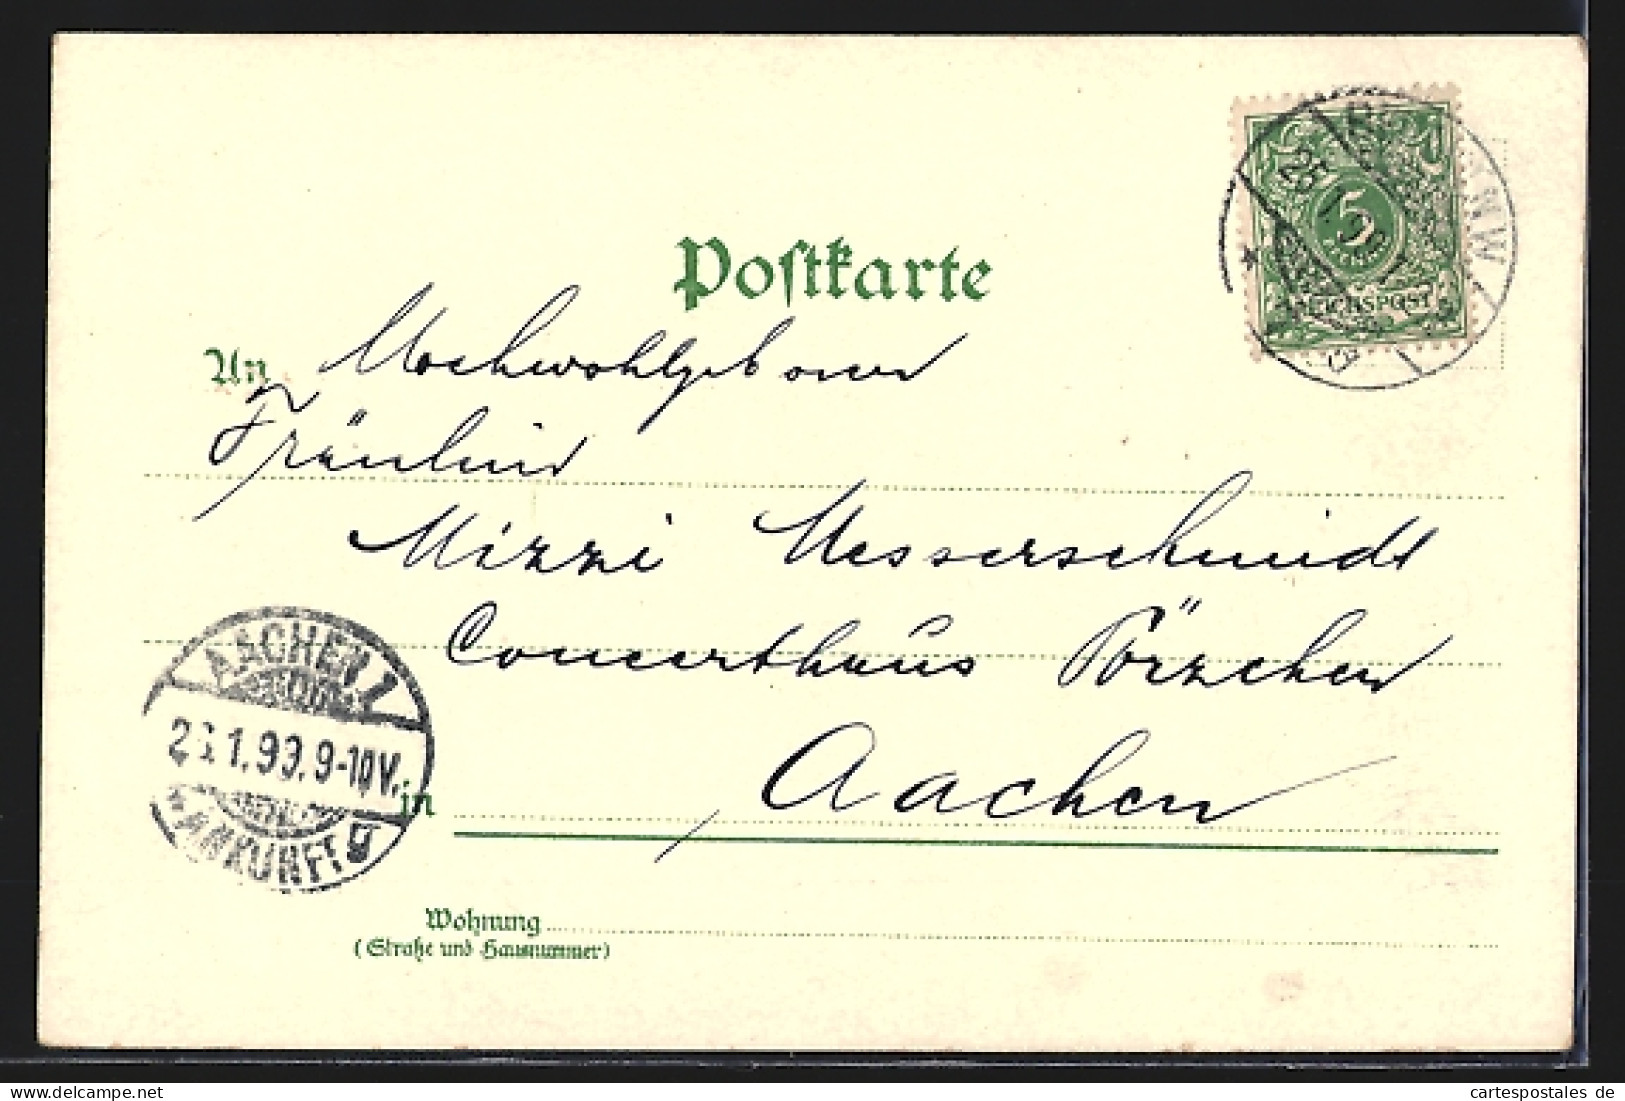 Postkarte
An Hochwohlgeboren
Fräulein
Mizzi Messerschmidt
Concerthaus
Aachen
in
Wohnung
(Straße und Hausnummer)
5
REICHSPOST
25 1
N.W.
AACHEN 1
1.99. 9-10V.
ANKUNFT
cartespostales de